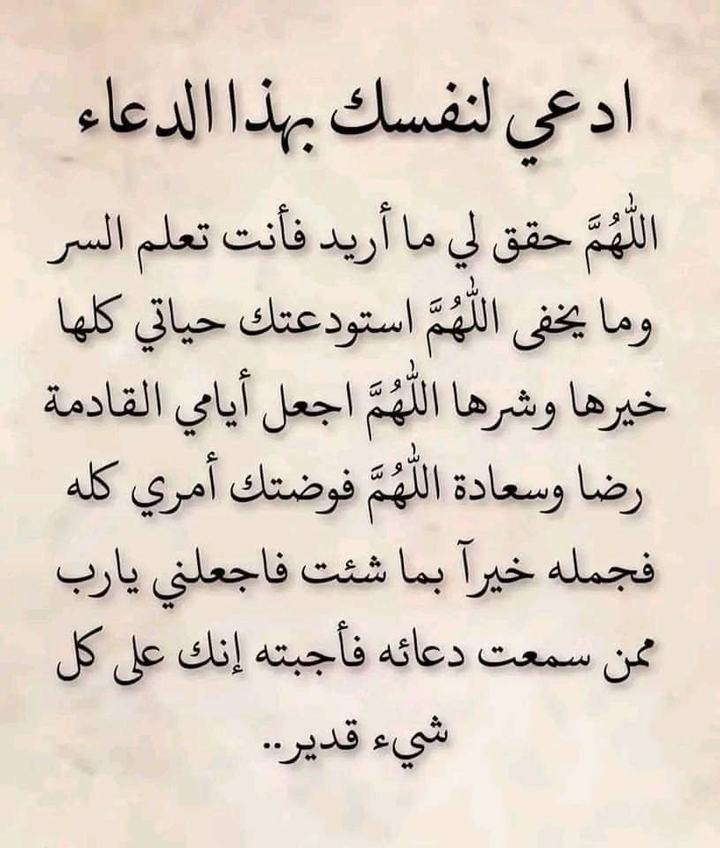 ادعي لنفسك بهذا الدعاء
اللهُمَّ حقق لي ما أريد فأنت تعلم السر
وما يخفى اللهُمَّ استودعتك حياتي كلها
خيرها وشرها اللهُمَّ اجعل أيامي القادمة
رضا وسعادة اللهُمَّ فوضتك أمري كله
فجمله خيرآ بما شئت فاجعلني يارب
ممن سمعت دعائه فأجبته إنك على كل
شيء قدير..